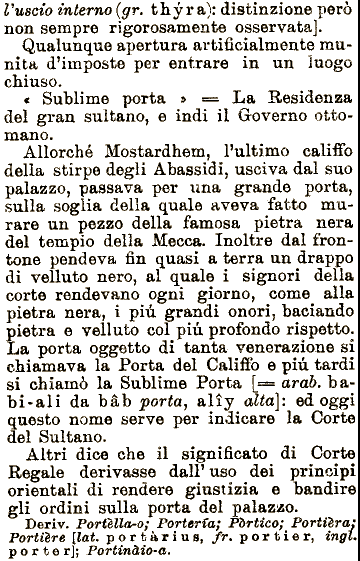 l'uscio interno (gr. thýra): distinzione però
non sempre rigorosamente osservata].
Qualunque apertura artificialmente mu-
nita d'imposte per entrare in un luogo
chiuso.
« Sublime porta » = La Residenza
del gran sultano, e indi il Governo otto-
mano.
Allorché Mostardhem, l'ultimo califfo
della stirpe degli Abassidi, usciva dal suo
palazzo, passava per una grande porta,
sulla soglia della quale aveva fatto mu-
rare un pezzo della famosa pietra nera
del tempio della Mecca. Inoltre dal fron-
tone pendeva fin quasi a terra un drappo
di velluto nero, al quale i signori della
corte rendevano ogni giorno, come alla
pietra nera, i piú grandi onori, baciando
pietra e velluto col piú profondo rispetto.
La porta oggetto di tanta venerazione si
chiamava la Porta del Califfo e piú tardi
si chiamò la Sublime Porta [= arab. ba-
bi-ali da bâb porta, alîy alta]: ed oggi
questo nome serve per indicare la Corte
del Sultano.
Altri dice che il significato di Corte
Regale derivasse dall'uso dei principi
orientali di rendere giustizia e bandire
gli ordini sulla porta del palazzo.
Deriv. Portèlla-o; Portería; Pòrtico; Portièra;
Portière [lat. portàrius, fr. portier, ingl.
porter]; Portinàio-a.